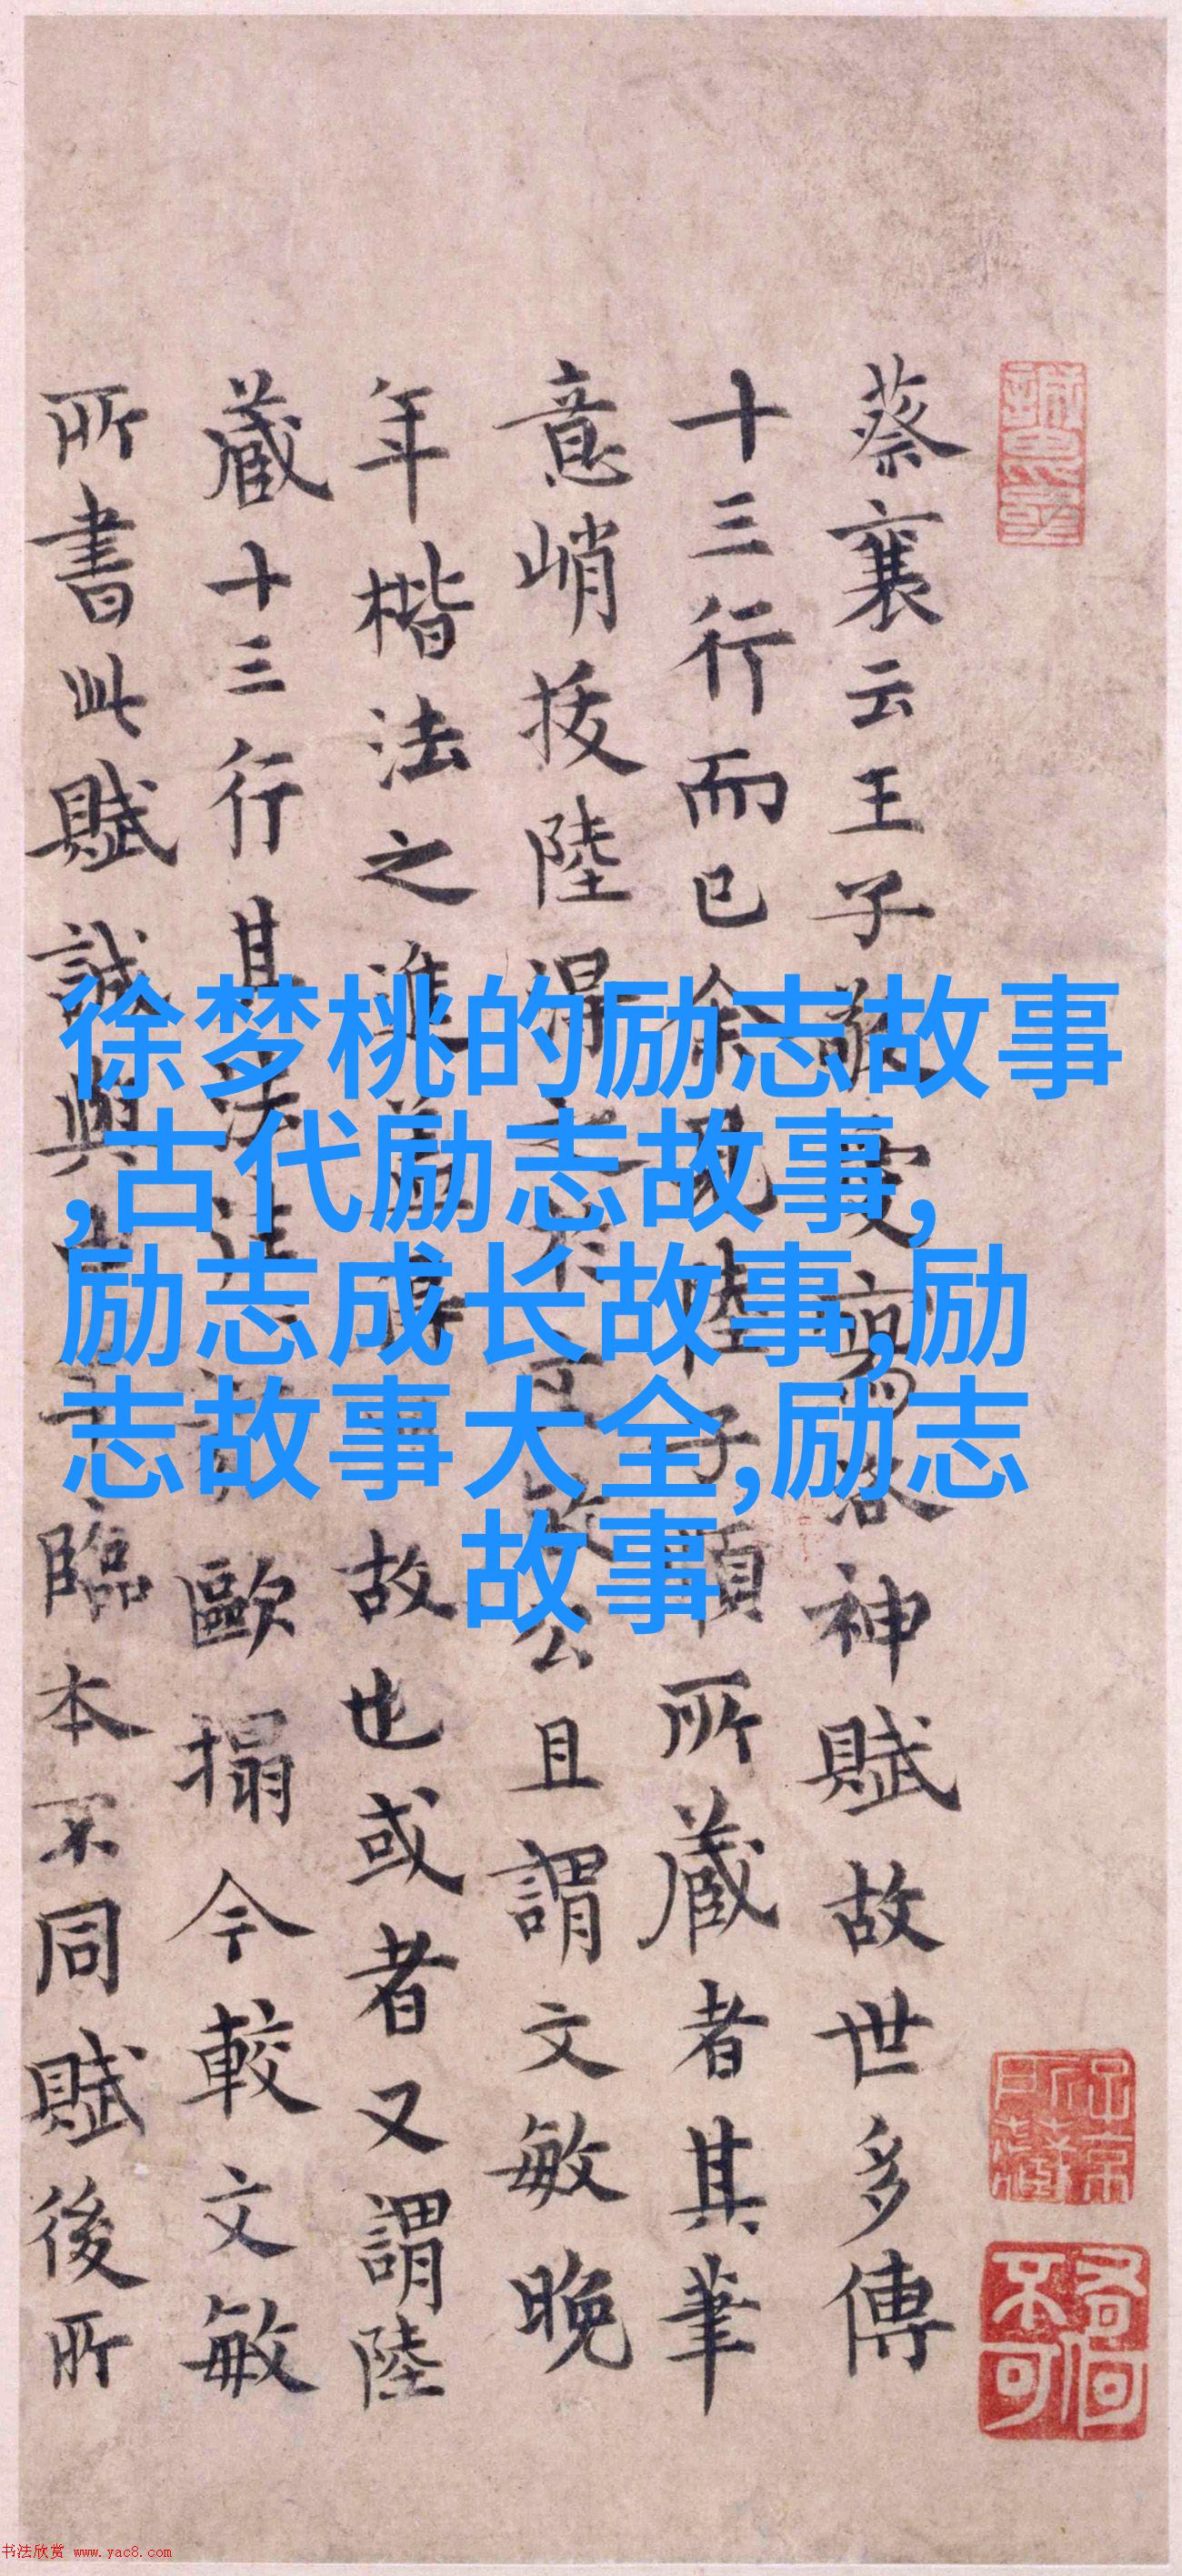 徐梦桃的励志故事
,古代励志故事,
励志成长故事,励
志故事大全,励志
故事
蔡襄云王子敬愛寫洛神賦故世多傳
十三行而已余見陸子順所藏者其筆
意峭拔陸得公且謂文敏晚
年楷法之進蓋故也或者又謂陸
藏十三行其法歐搨今較文敏
所書此賦誠與臨本不同賦後所
书法欣赏 www.yac8.com